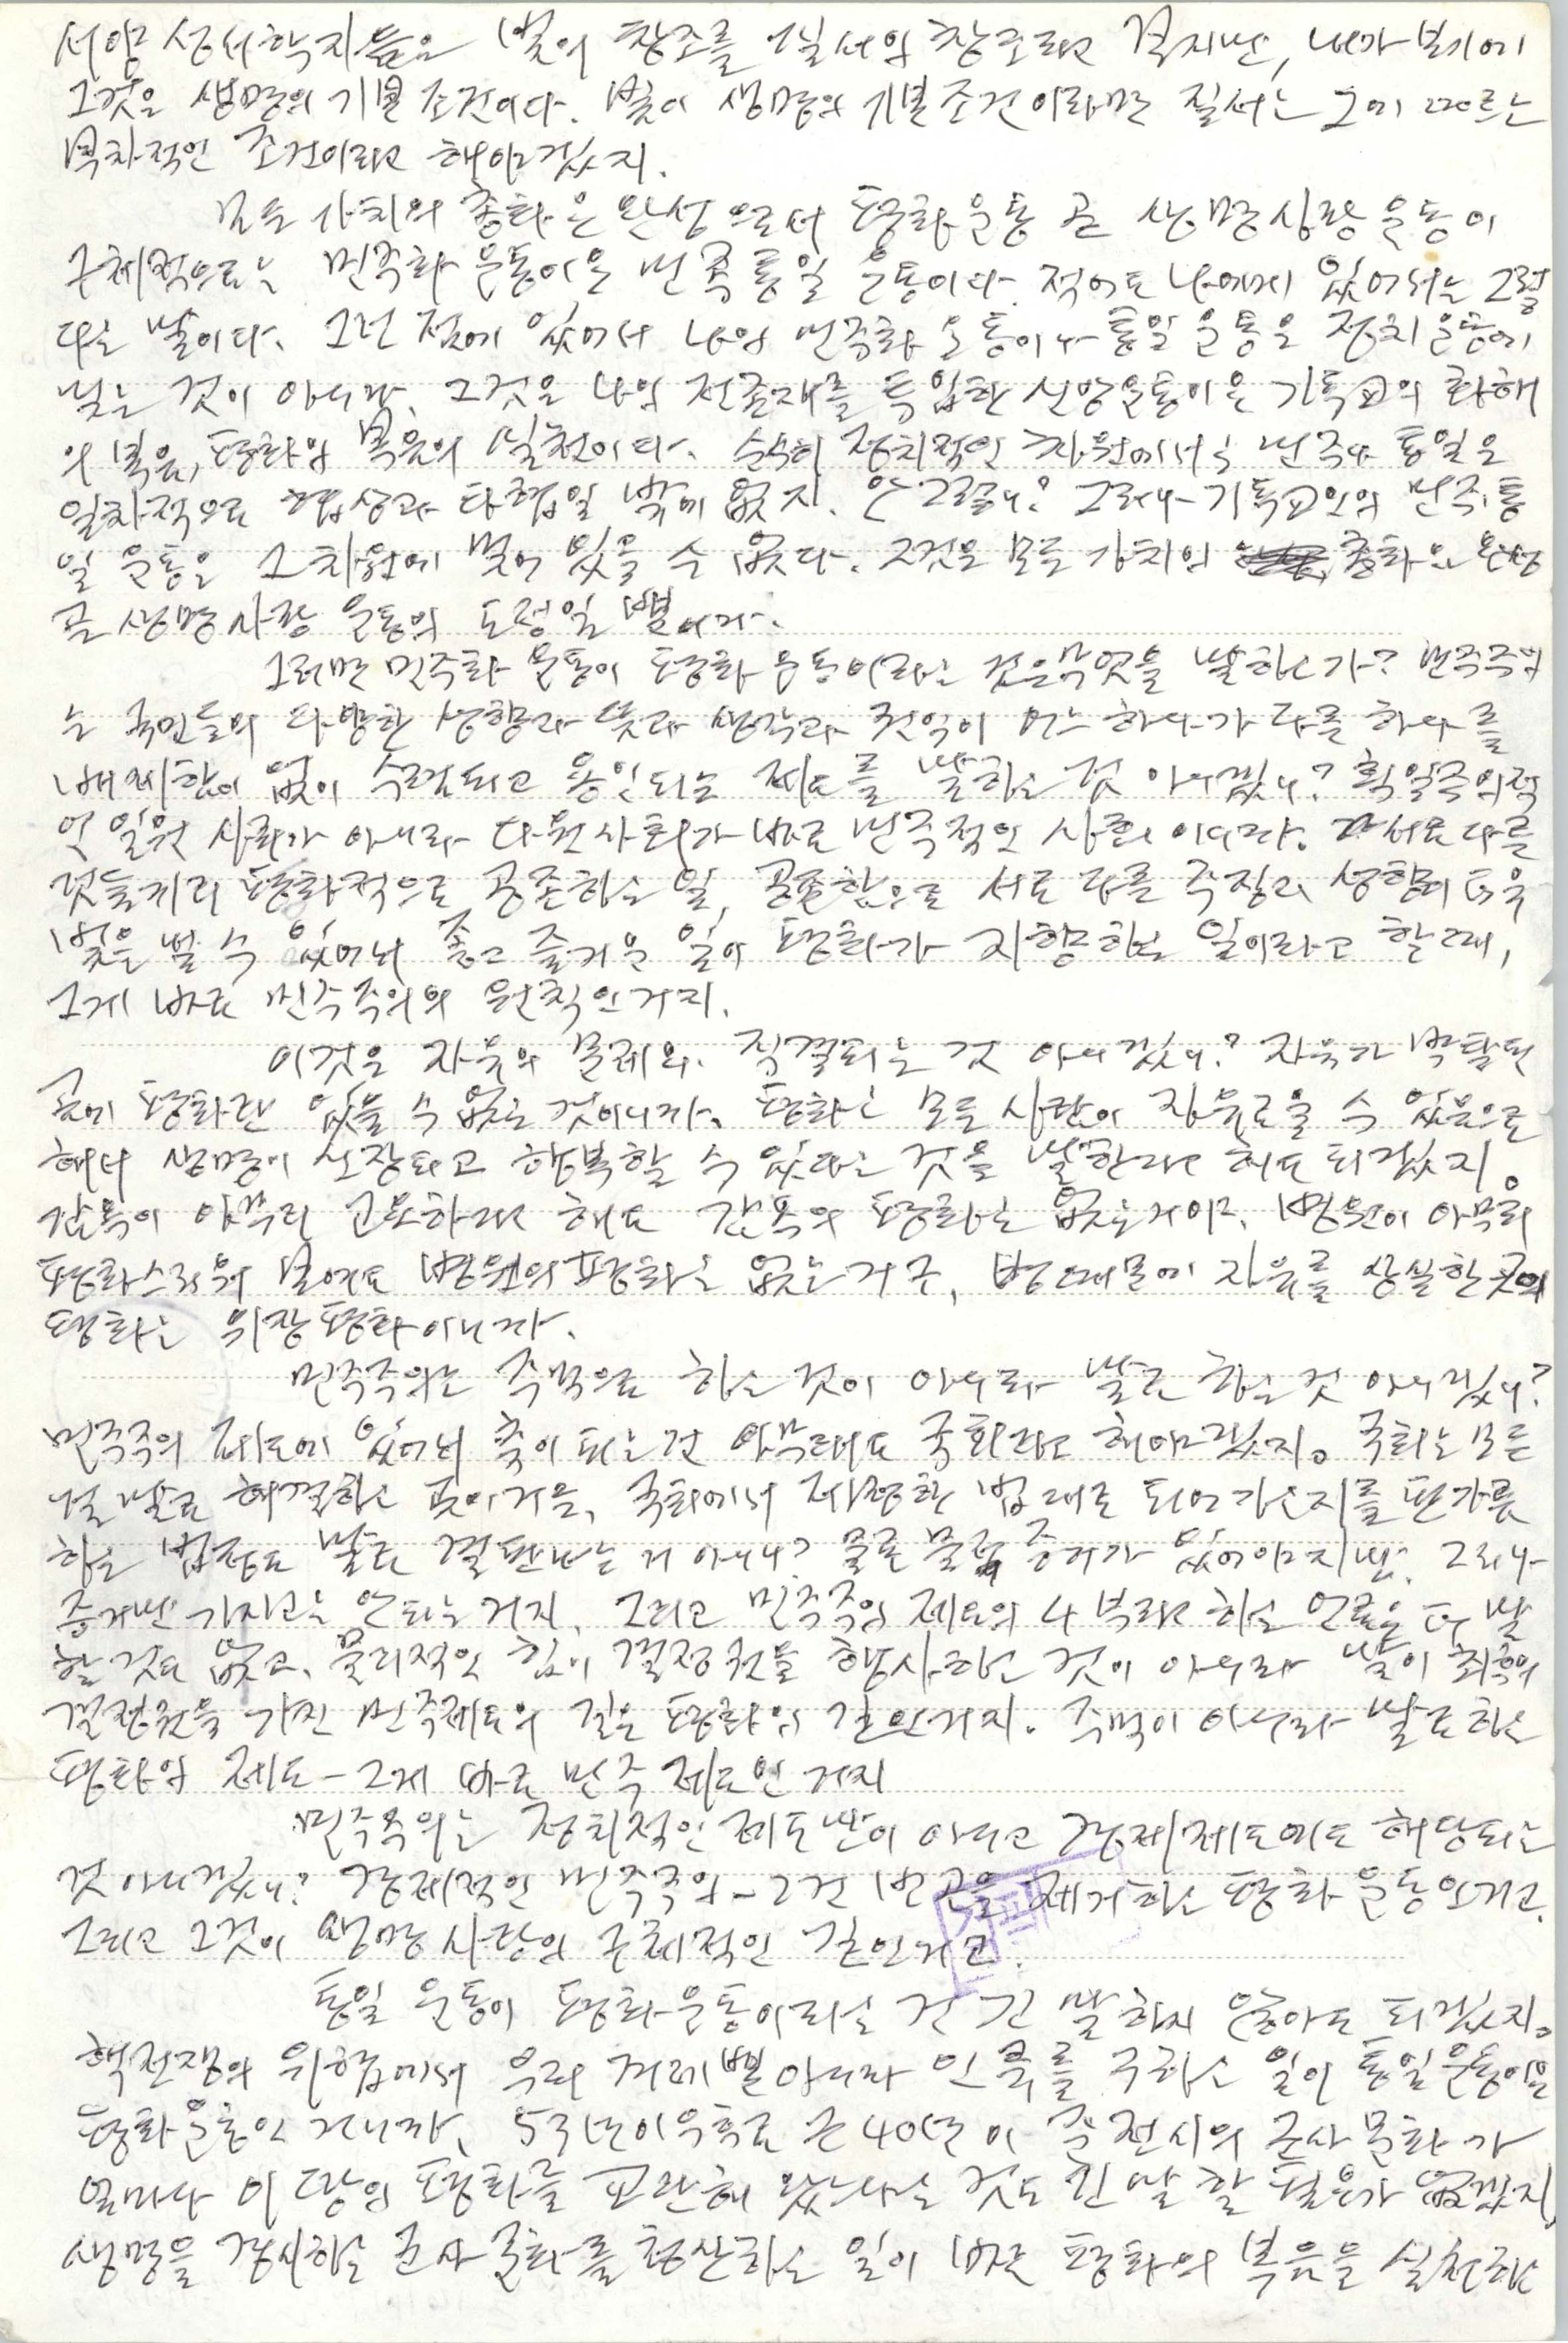 서양 성서학자들은 빛의 창조를 질서의 창조라고 보지만, 내가 보기에
그것은 생명의 기본 조건이다. 빛이 생명의 기본 조건이라면 질서는 그에 따르는
부차적인 조건이라고 해야겠지.
모든 가치의 총화요 완성으로서 평화운동 곧 생명사랑 운동이
구체적으로는 민주화 운동이요 민족통일 운동이다. 적어도 나에게 있어서는 그렇
다는 말이다. 그런 점에 있어서 나의 민주화 운동이나 통일 운동은 정치운동에
멎는 것이 아니라, 그것은 나의 전존재를 투입한 신앙운동이요 기독교의 화해
의 복음, 평화의 복음의 실천이다. 순수히 정치적인 차원에서는 민주나 통일은
일차적으로 협상과 타협일 밖에 없지. 안 그렇니? 그러나 기독교인의 민주, 통
일 운동은 그 차원에 멎어 있을 수 없다. 그것은 모든 가치의 총화요 완성
곧 생명사랑 운동의 도정일 뿐이다.
그러면 민주화 운동이 평화운동이라는 것은 무엇을 말하는가? 민주주의
는 국민들의 다양한 성향과 뜻과 생각과 권익이 어느 하나가 다른 하나를
배제함이 없이 수렴되고 용인되는 제도를 말하는 것 아니겠니? 획일주의적
인 일원 사회가 아니라 다원사회가 바로 민주적인 사회이니라. 서로 다른
것들끼리 평화적으로 공존하는 일, 공존함으로 서로 다른 특징과 성향이 더욱
빛을 낼 수 있어서 좋고 즐거운 일이 평화가 지향하는 일이라고 할 때,
그게 바로 민주주의의 원칙인 거지.
이것은 자유의 문제와 직결되는 것 아니겠니? 자유가 박탈된
곳에 평화란 있을 수 없는 것이니까. 평화는 모든 사람이 자유로울 수 있음으로
해서 생명이 신장되고 행복할 수 있다는 것을 말한다고 해도 되겠지.
감옥이 아무리 고요하다고 해도 감옥의 평화는 없는 거이고, 병원이 아무리
평화스러워 보여도 병원의 평화는 없는 거구, 병 때문에 자유를 상실한 곳의
평화는 위장평화이니까.
민주주의는 주먹으로 하는 것이 아니라 말로 하는 것 아니겠니?
민주주의 제도에 있어서 축이 되는 건 아무래도 국회라고 해야겠지. 국회는 모든
걸 말로 해결하는 곳이거든. 국회에서 제정한 법대로 되어가는지를 판가름
하는 법정도 말로 결판나는 거 아니니? 물론 물적 증거가 있어야지만. 그러나
증거만 가지고는 안되는 거지. 그리고 민주주의 제도의 4부라고 하는 언론은 더 말
할 것도 없고. 물리적인 힘이 결정권을 행사하는 것이 아니라 말이 최후의
결정권을 가진 민주제도의 길은 평화의 길인거지. 주먹이 아니라 말로 하는
평화의 제도 - 그게 바로 민주 제도인 거지
민주주의는 정치적인 제도만이 아니고 경제제도에도 해당되는
것 아니겠니? 경제적인 민주주의 - 그건 빈곤을 제거하는 평화운동인거고.
그리고 그것이 생명 사랑의 구체적인 길인거고.
통일 운동이 평화운동이라는 건 긴 말 하지 않아도 되겠지.
핵전쟁의 위험에서 우리 겨레뿐 아니라 인류를 구하는 일이 통일운동이요
평화운동인 거니까. 53년 이후로 근 40년 이 준전시의 군사문화가
얼마나 이 땅의 평화를 교란해 왔느냐는 것도 긴 말 할 필요가 없겠지.
생명을 경시하는 군사문화를 청산하는 일이 바로 평화의 복음을 실천하는